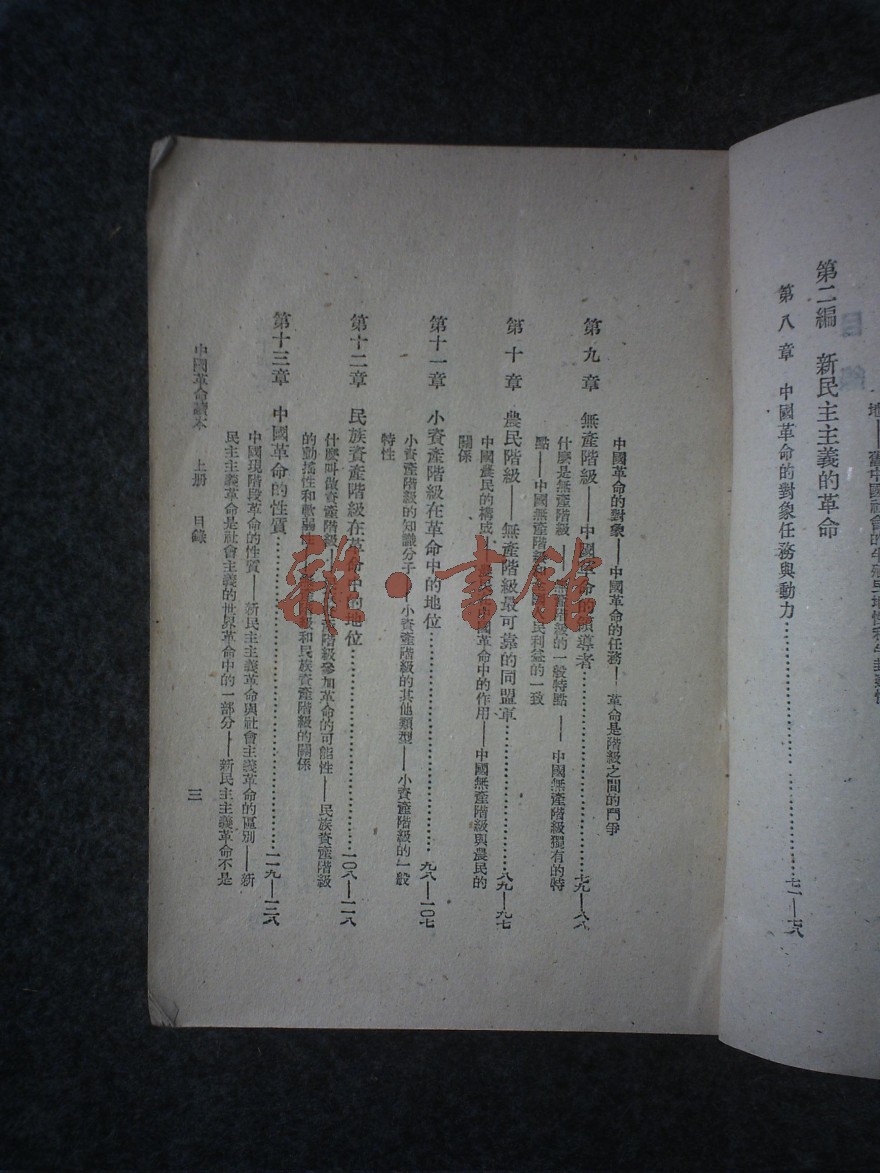 第二編　新民主主義的革命
第八章　中國革命的對象任務與動力……七一—七八
中國革命的對象——中國革命的任務——革命是階級之間的鬥爭
第九章　無產階級——中國革命的領導者……七九—八八
什麼是無產階級——無產階級的一般特點——中國無產階級獨有的特
點——中國無產階級和農民利益的一致
第十章　農民階級——無產階級最可靠的同盟軍……八九—九七
中國農民的構成——農民在中國革命中的作用——中國無產階級與農民的
關係
第十一章　小資產階級在革命中的地位……九八—一〇七
小資產階級的知識分子——小資產階級的其他類型——小資產階級的一般
特性
第十二章　民族資產階級在革命中的地位……一〇八—一一八
什麼叫做資產階級——民族資產階級參加革命的可能性——民族資產階級
的動搖性和軟弱性——級和民族資產階級的關係
第十三章　中國革命的性質……一一九—一二八
中國現階段革命的性質——新民主主義革命與社會主義革命的區別——新
民主主義革命是社會主義的世界革命中的一部分——新民主主義革命不是
中國革命讀本　上册　目錄
三
雜·書館